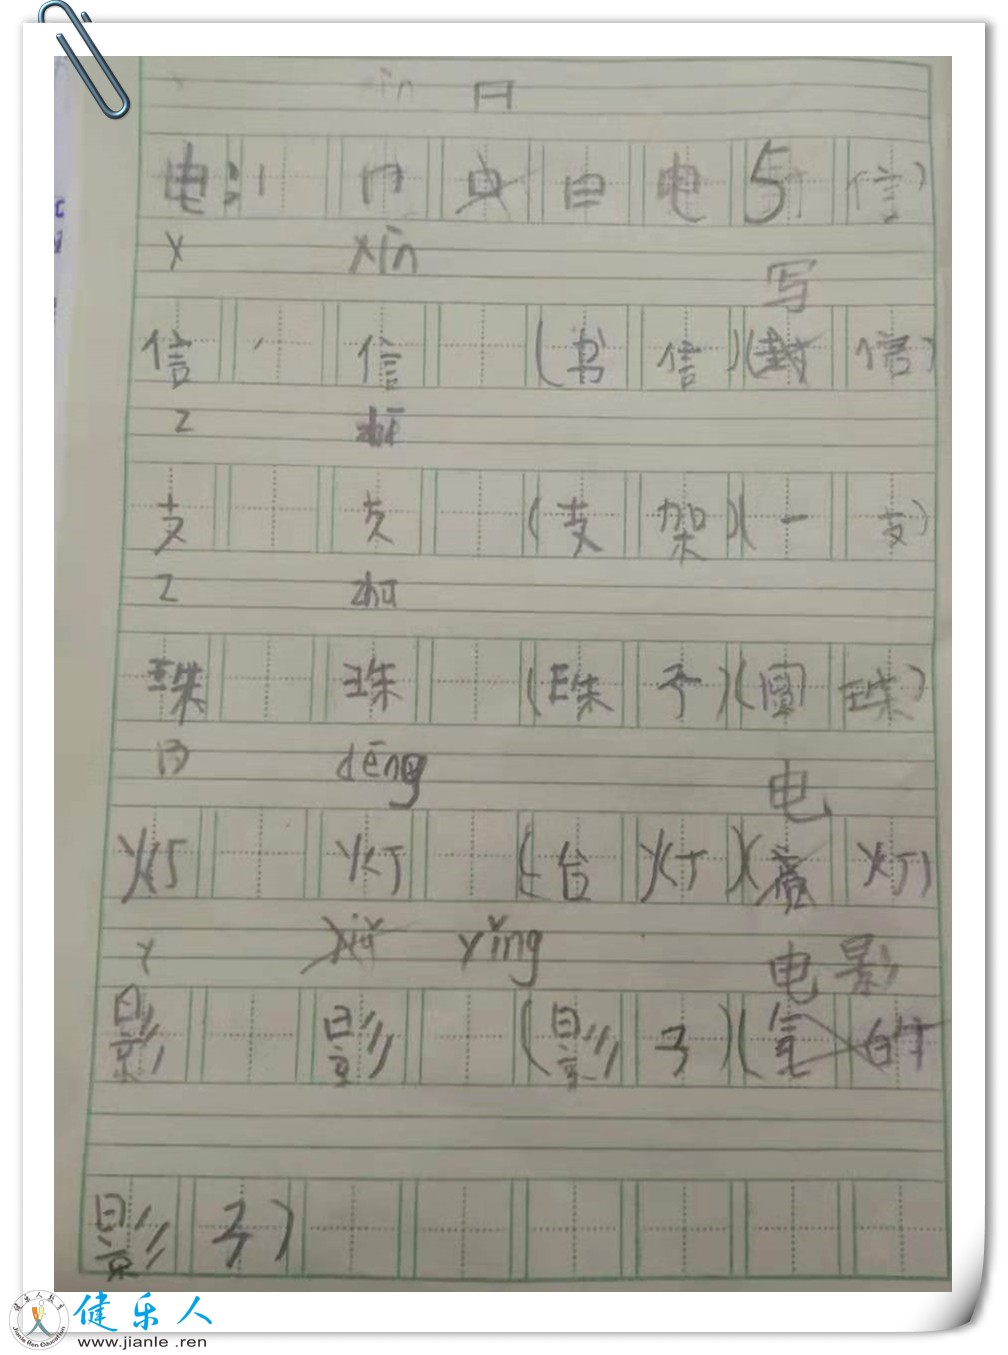 xin 日
电 电 5 信）
x xīn 写
信 信 （书 信）（封 信）
z zhī
支 支 （支 架）（一 支）
z zhū
珠 珠 （珠 子）（圆 珠）
d dēng 电
灯 灯 （台 灯）（ 灯）
y yǐng 电影
影 影 （影 子）（ 的
影 子）
健乐人
www.jianle.ren